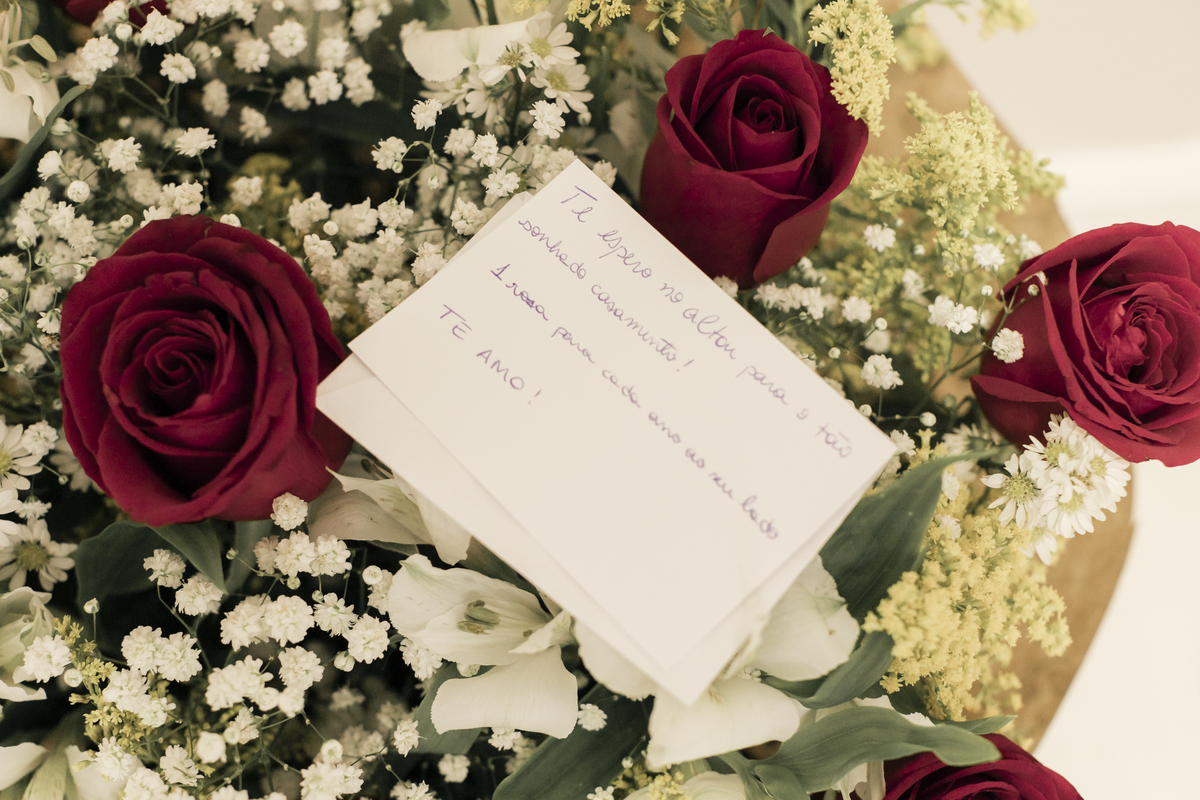 Te espero no altar para o tão
sonhado casamento!
1 rosa para cada ano ao seu lado
TE AMO!